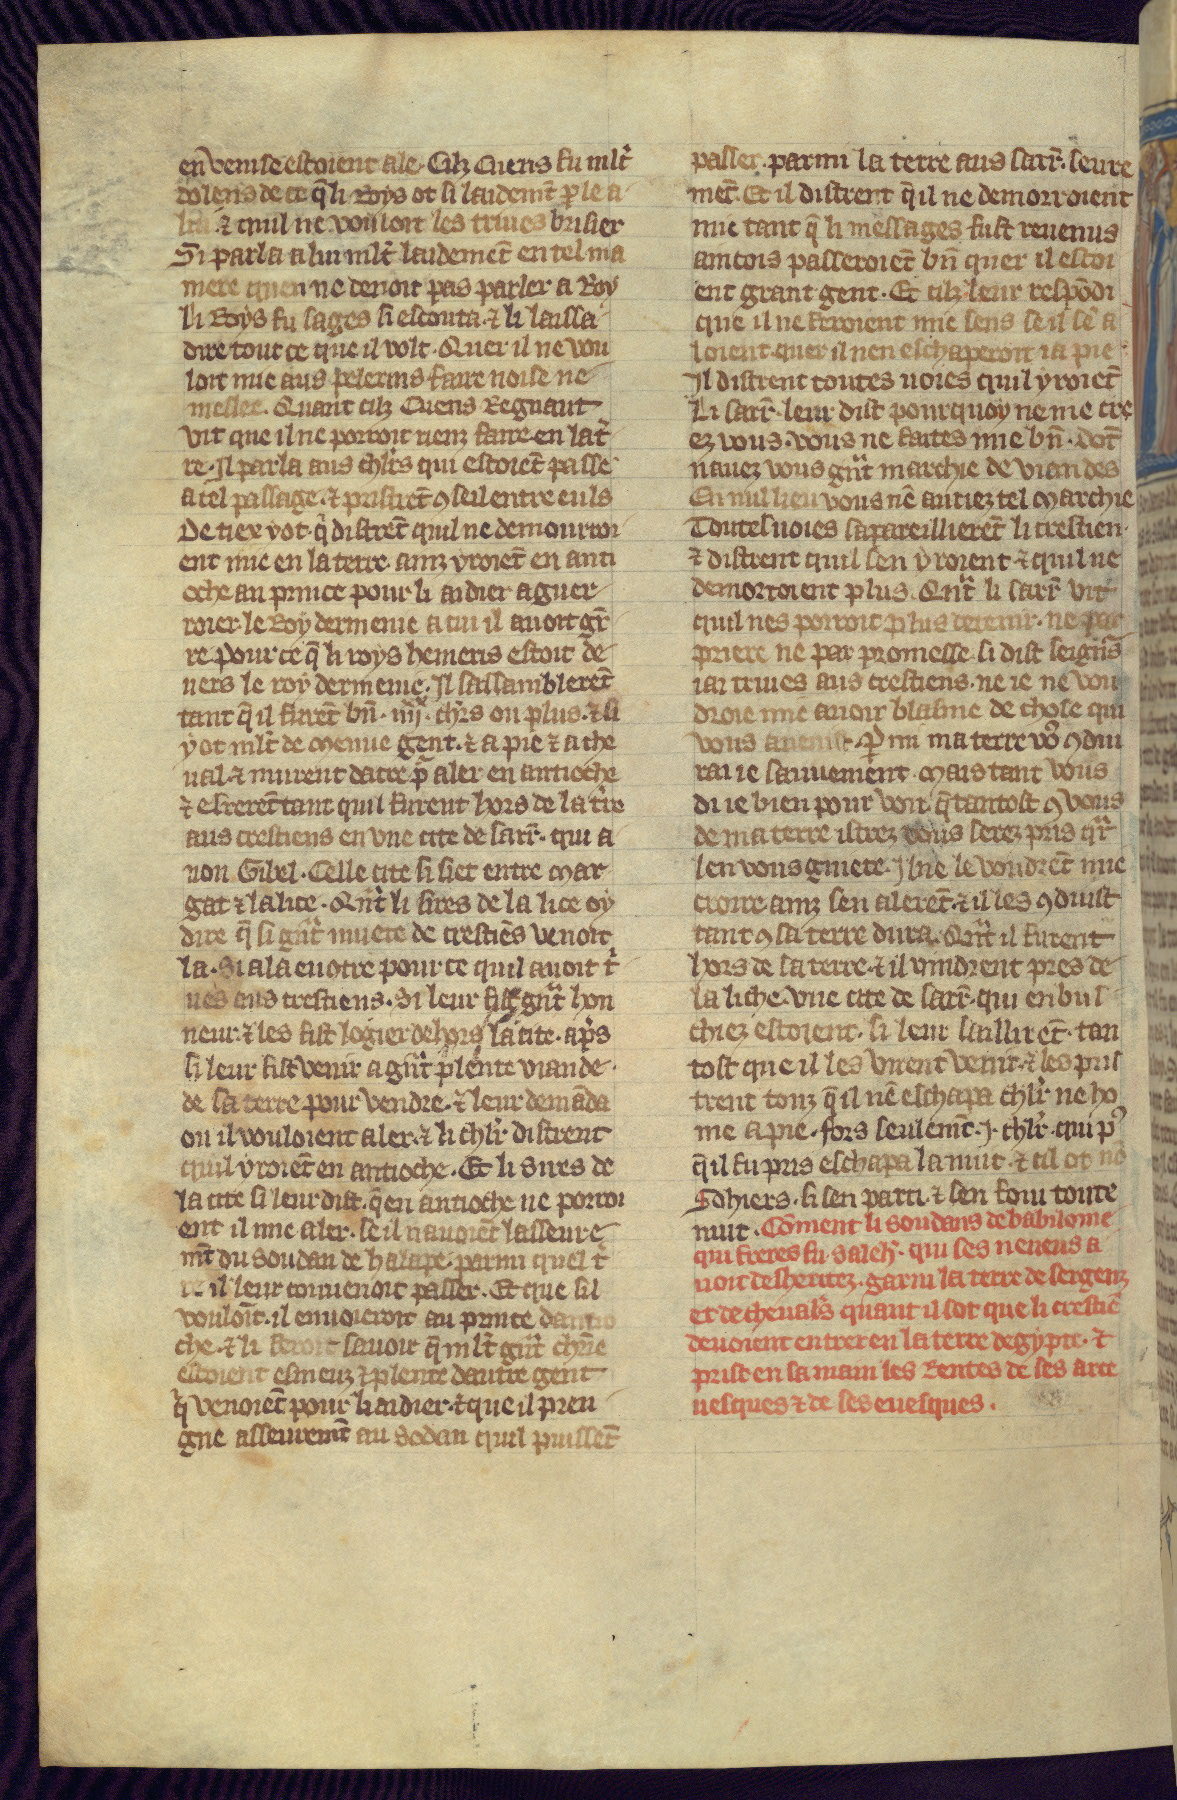 en venise estoient ale. Cilz Cuens fu mlt̃
dolens de ce q̃ li Roys ot si laidem̃t ple a
lui ⁊ quil ne vouloit les triues brisier
Si parla a lui mlt̃ laidemẽt en tel ma
niere quen ne deuoit pas parler a Roy
li Roys fu sages si escouta ⁊ li laissa
dire tout ce que il volt. Quer il ne vou
loit mie aus pelerins faire noise ne
meslee. Quant cilz Cuens Regnaut
vit que il ne porroit riens faire en la t̃
re. Il parla aus chl̃rs qui estoiẽt passe
a tel passage ⁊ pristrẽt ꝯseil entre euls
De tiex yot q̃ distrẽt quil ne demourroi
ent mie en la terre ainz yroiẽt en anti
oche au prince pour li aidier a guer
roier le Roy dermenie a cui il auoit gr̃
re pour ce q̃ li roys hemeris estoit de
uers le roy dermenie. Il sassamblerẽt
tant q̃ il furẽt bñ .iiij. chl̃rs ou plus. ⁊ si
y ot mlt̃ de menue gent. ⁊ a pie ⁊ a che
ual ⁊ murent dacre p̃ aler en antioche
⁊ esrerẽt tant quil furent hors de la tr̃e
aus crestiens en vne cite de sarr̃. qui a
non Gibel. Celle cite si siet entre mar
gat ⁊ la lice. Qñt li sires de la lice oy
dire q̃ si grñt muete de crestiẽs venoit
la. Si ala encõtre pour ce quil auoit t̃
ues aus crestiens. Si leur fist grñt hon
neur. ⁊ les fist logier dehors la cite. ap̃s
si leur fist venir a grñt plente viande
de sa terre pour vendre. ⁊ leur demãda
ou il vouloient aler. ⁊ li chl̃r distrent
quil yroiẽt en antioche. Et li sires de
la cite si leur dist. q̃ en antioche ne porroi
ent il mie aler. se il nauoiẽt lasseure
m̃t du soudan de halape. parmi quel t̃
re il leur couuenoit passer. Et que sil
vouloiẽt. il enuoieroit au prince dantio
che. ⁊ li feroit sauoir q̃ mlt̃ grñt chl̃rie
estoient esmeuz ⁊ plente dautre gent
q̃ venoiẽt pour li aidier. ⁊ que il pren
gne asseurem̃t au sodan quil puissẽt
passer. parmi la terre aus sarr̃. seure
mẽt. Et il distrent q̃ il ne demorroient
mie tant q̃ li messages fust reuenus
aincois passeroiẽt bñ quer il estoi
ent grant gent. Et cilz leur respõdi
que il ne feroient mie sens se il sẽ a
loient. quer il nen eschaperoit ia pie
Il distrent toutes uoies quil yroiẽt
Li sarr̃. leur dist pourquoy ne me cre
ez vous. vous ne faites mie bñ. dõt
nauez vous grñt marchie de viandes
En nul lieu vous nẽ auriez tel Marchie
Toutes uoies sapareillierẽt li crestien.
⁊ distrent quil sen yroient ⁊ quil ne
demorroient plus. Qñt li sarr̃ vit
quil nes porroit plus detenir. ne par
priere ne par promesse. si dist seigñs
iai triues aus crestiens. ne ie ne vou
droie mie auoir blasme de chose qui
vous auenist. P̃ mi ma terre vo9 ꝯdui
rai ie sauuement. Mais tant vous
di ie bien pour voir. q̃ tantost ꝯ vous
de ma terre istrez vous serez pris q̃r
len vous guiete. Il ne le voudrẽt mie
croire. ainz sen alerẽt. ⁊ il les ꝯduist
tant ꝯ sa terre dura. Qñt il furent
hors de sa terre. ⁊ il vindrent pres de
la liche. vne cite de sarr̃. qui en bus
chiez estoient. si leur saillirẽt. tan
tost que il les virent venir. ⁊ les pris
trent touz q̃ il nẽ eschapa chl̃r ne ho
me a pie. fors seulem̃t .j. chl̃r. qui p9
q̃ il fu pris eschapa la nuit. ⁊ cil ot nõ
Sohiers. si sen parti. ⁊ sen foui toute
nuit. Cõment li soudans de babiloine
qui freres fu saleh̃. qui ses neueus a
uoit desheritez. garni la terre de sergenz
et de cheualr̃s quant il sot que li crestiẽ
deuoient entrer en la terre degypte. ⁊
prist en sa main les Rentes de ses arce
uesques ⁊ de ses euesques.